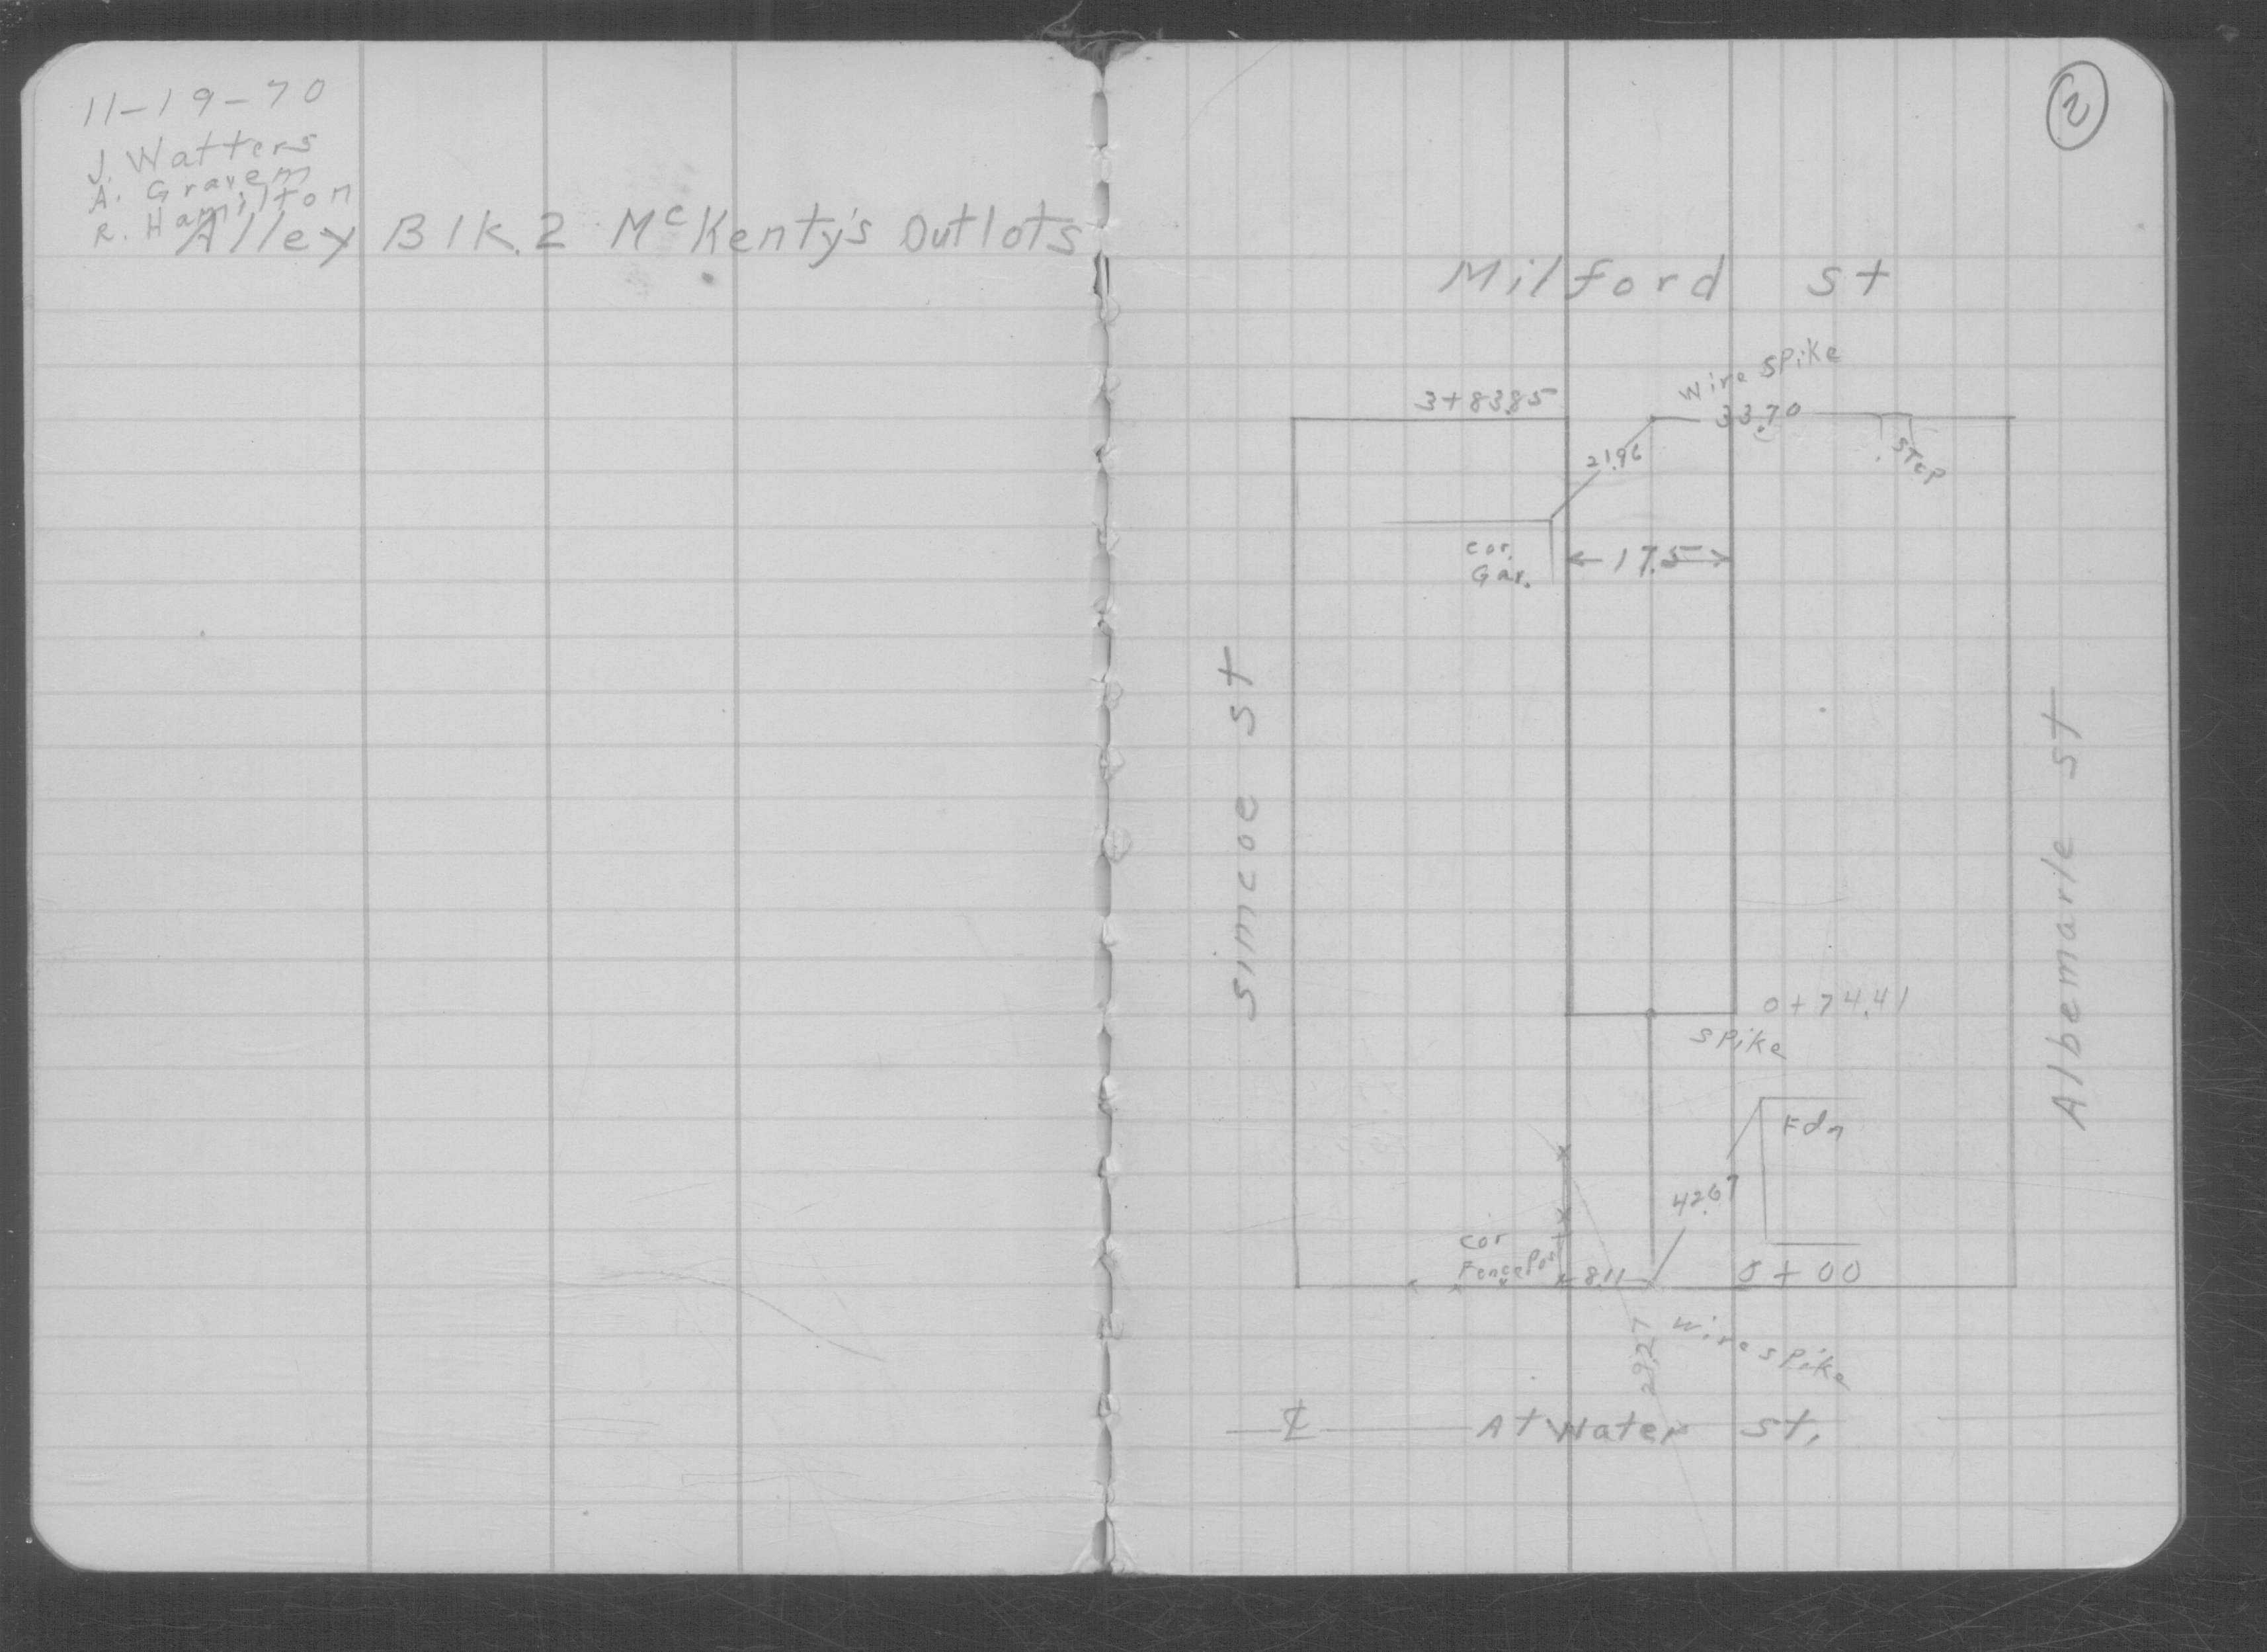 11-19-70
J. Watters
A. Gravem
R. Hamilton
Alley Blk. 2 McKenty's Outlots
2
Milford St
Wire Spike
3+83.85
33.70
Step
21.96
cor.
Gar.
17.5
Simcoe St
Albemarle St
0+74.41
Spike
Fdn
42.67
cor
Fence Post
8.11
0+00
29.27
Wire Spike
℄ Atwater St.